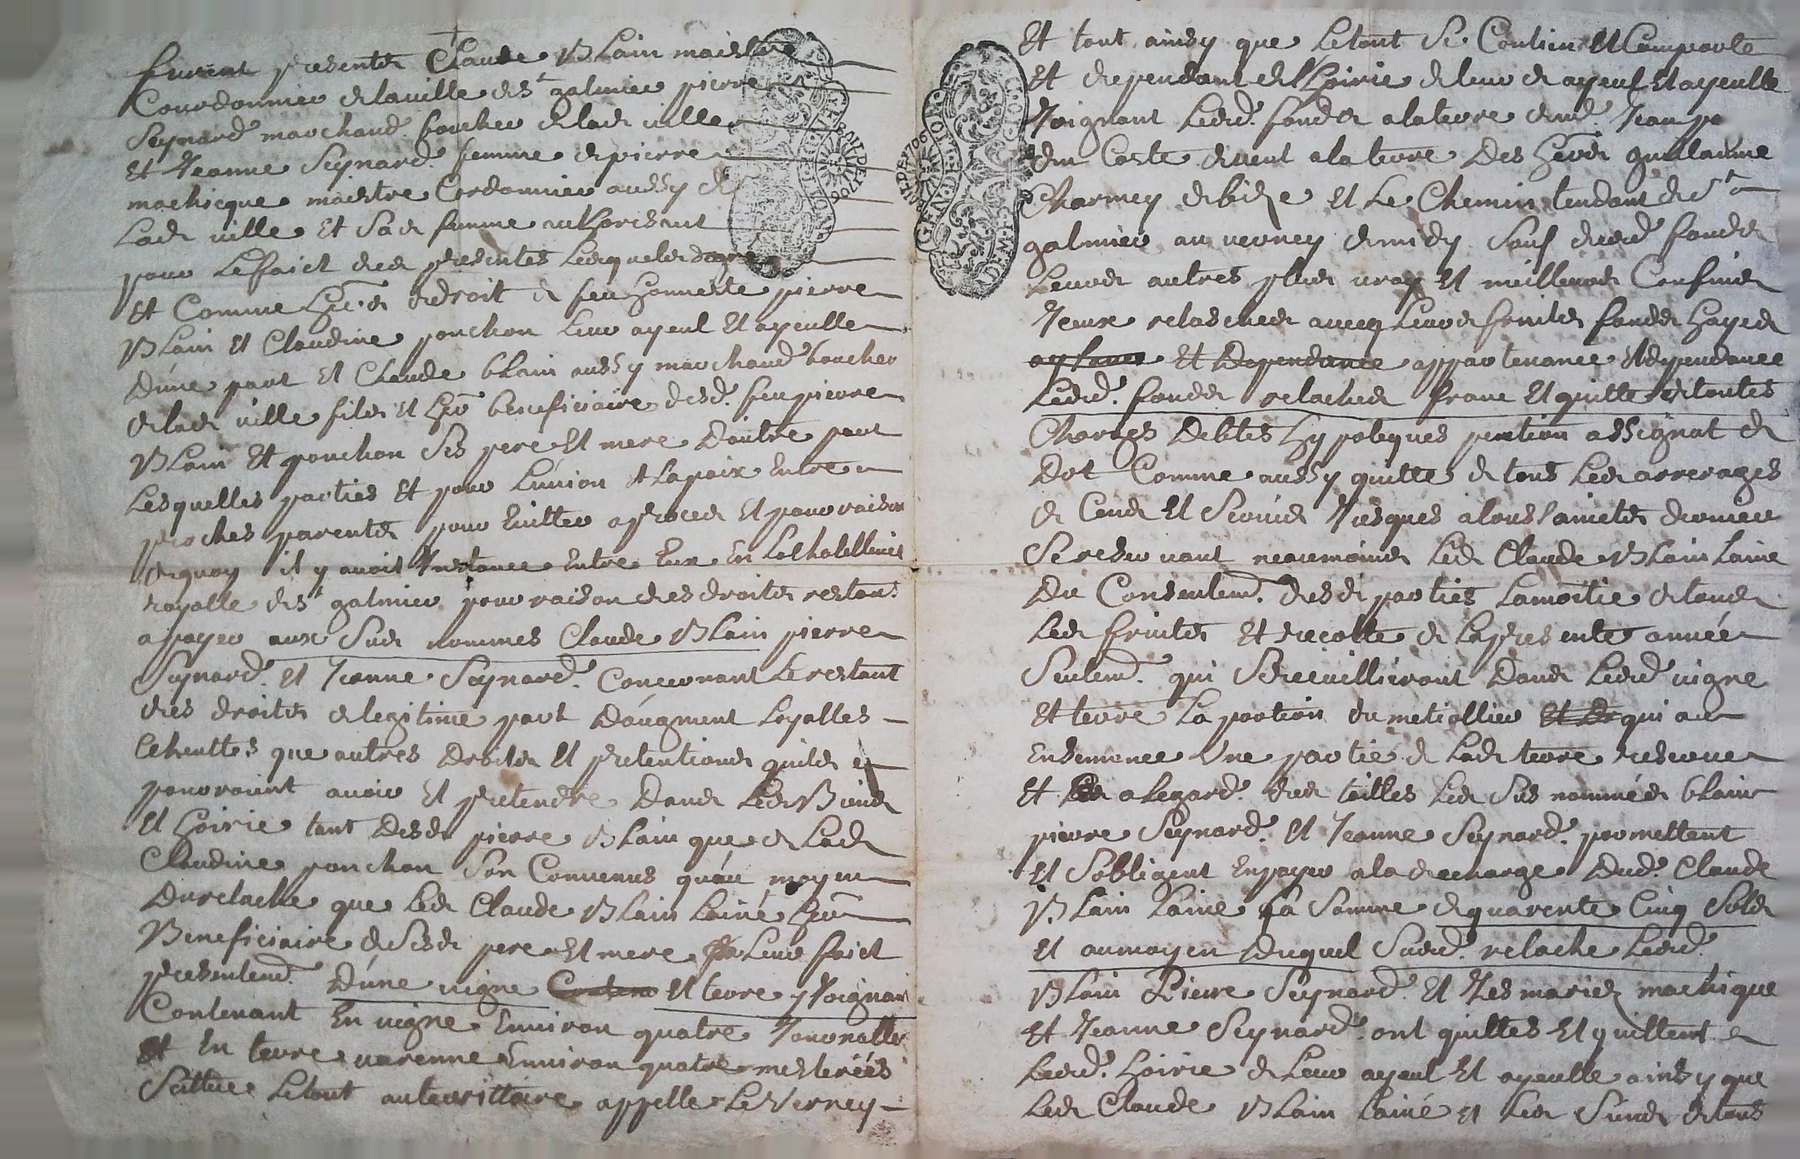 furent presentes Claude Blain maistre
Courdonnier de la ville de st galmier pierre
Seynard marchand boucher de lade ville
et Jeanne Seynard femme de pierre
machicque maistre Cordonnier aussy de
lade ville et sade femme
pour le faict des presentes lesquels de
et Comme de droit de feu honneste pierre
Blain et Claudine ponchon leur ayeul et ayeulle
Dúne part et Claude blain aussy marchand boucher
de lade ville fils et beneficiaire desd. feu pierre
Blain et ponchon ses pere et mere Dautre part
Lesquelles parties et pour Lúnion et la paix Entre
proches parents pour Eviter a proces et pour raison
de quoy il y avoit Instance Entre Eux En La Chatellenie
royalle de st galmier pour raison des droits restans
a payer aux Sus nommes Claude Blain pierre
Seynard et Jeanne Seynard Concernant le restant
des droits de legitime part Daugment
que autres Droits et pretentions quils
pouroient avoir et pretendre Dans les Biens
et hoirie tant Desd pierre Blain que de lade
Claudine ponchon Son Convenus quau moyen
Du relache que led Claude Blain Lainé
Beneficiaire de sesd pere et mere Leur faict
presentemd Dúne vigne et terre y Joignant
Contenant En vigne Environ quatre Journalles
et En terre varenne Environ quatre mesterées
Scittue Le tout au territoire appelle Le Verney
Et tout ainsy que Letout Se Contien et Comporte
et dependant de lhoirie de leur d ayeul et ayeulle
Joignant led. fonds a la terre dud. Jean
du Coste de vent a la terre Des guilaume
Charmey de bize et Le Chemin tendant de st
galmier au verney de midy Sauf dud fonds
Leurs autres plus vray et meilleurs Confins
Iceux relasches avecq leurs fonds hayes
et Dependance appartenance et dependance
Led. fonds relaches franc et quitte de toutes
Charges Debtes hypoteques pention assignat de
Dot Comme aussy quittes de tous les arrerages
de Cens et Servis Jusques a
Se reservant neaumoins led Claude Blain Laine
Du Consentemd. desd parties Lamoitie de tous
les fruits et recolte de la presente année
Seulemd. qui Se recuilliront Dans led vigne
et terre La portion du qui a
Ensemence Une partie de lade terre reserve
et a legard des tailles les Sus nommés blain
pierre Seynard et Jeanne Seynard promettent
et Sobligent En payer a la decharge Dud. Claude
Blain Laine La Somme de quarente Cinq Sols
et au moyen Duquel Susd. relache led.
Blain Pierre Seynard et les maries machique
et Jeanne Seynard ont quittes et quittent
led. hoirie de leur ayeul et ayeulle ainsy que
led Claude Blain Lainé et les Siens de tous